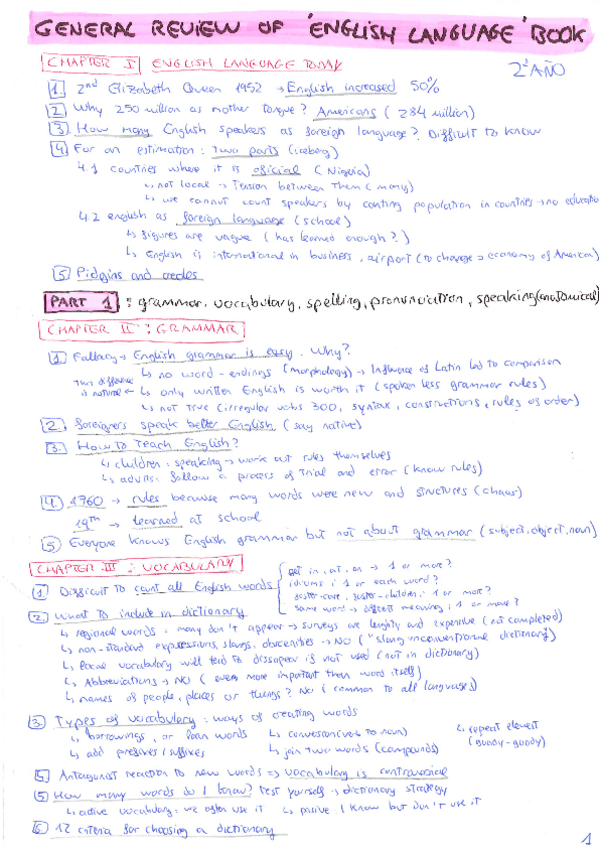 GENERAL REVIEW OF 'ENGLISH LANGUAGE' BOOK
CHAPTER I ENGLISH LANGUAGE TODAY
2º AÑO
1. 2nd Elizabeth Queen 1952 → English increased 50%
2. Why 250 million as mother tongue? Americans (284 million)
3. How many English speakers as foreign language? Difficult to know
4. For an estimation: two parts (iceberg)
4.1 countries where it is oficial (Nigeria)
↳ not local → Tension between them (many)
↳ we cannot count speakers by conting population in countries → no educatio
4.2 english as foreign language (school)
↳ figures are vague (has learned enough?)
↳ English is international in business, airport (to change → economy of America)
5. Pidgins and creoles
PART 1 : grammar, vocabulary, spelling, pronunciation, speaking (anatomical)
CHAPTER II : GRAMMAR
1. Fallacy → English grammar is easy. Why?
↳ no word-endings (morphology) → Influence of Latin led to comparison
This difference is natural ← ↳ only written English is worth it (spoken less grammar rules)
↳ not true (irregular verbs 300, syntax, constructions, rules of order)
2. foreigners speak better English (say native)
3. How to teach English?
↳ children: speaking → work out rules themselves
↳ adults: follow a process of trial and error (know rules)
4. 1760 → rules because many words were new and structures (chaos)
19th → learned at school
5. Everyone knows English grammar but not about grammar (subject, object, noun)
CHAPTER III : VOCABULARY
1. Difficult to count all English words
get in, at, on → 1 or more?
idioms: 1 or each word?
foster-care, foster-children: 1 or more?
same word → different meaning: 1 or more?
2. What to include in dictionary
↳ regional words: many don't appear → surveys are lengthy and expensive (not completed)
↳ non-standard expressions, slangs, obscenities → NO ("slang inconventional dictionary)
↳ local vocabulary will tend to dissapear if not used (not in dictionary)
↳ Abbreviations → NO (even more important than word itself)
↳ names of people, places or things? No (common to all languages)
3. Types of vocabulary: ways of creating words
↳ borrowings, or loan words ↳ conversion (verb to noun) ↳ repeat element (goody-goody)
↳ add prefixes/suffixes ↳ join two words (compounds)
4. Antagonist reaction to new words → vocabulary is controversial
5. How many words do I know? test yourself → dictionary strategy
↳ active vocabulary: we often use it ↳ passive I know but don't use it
6. 12 criteria for choosing a dictionary
1